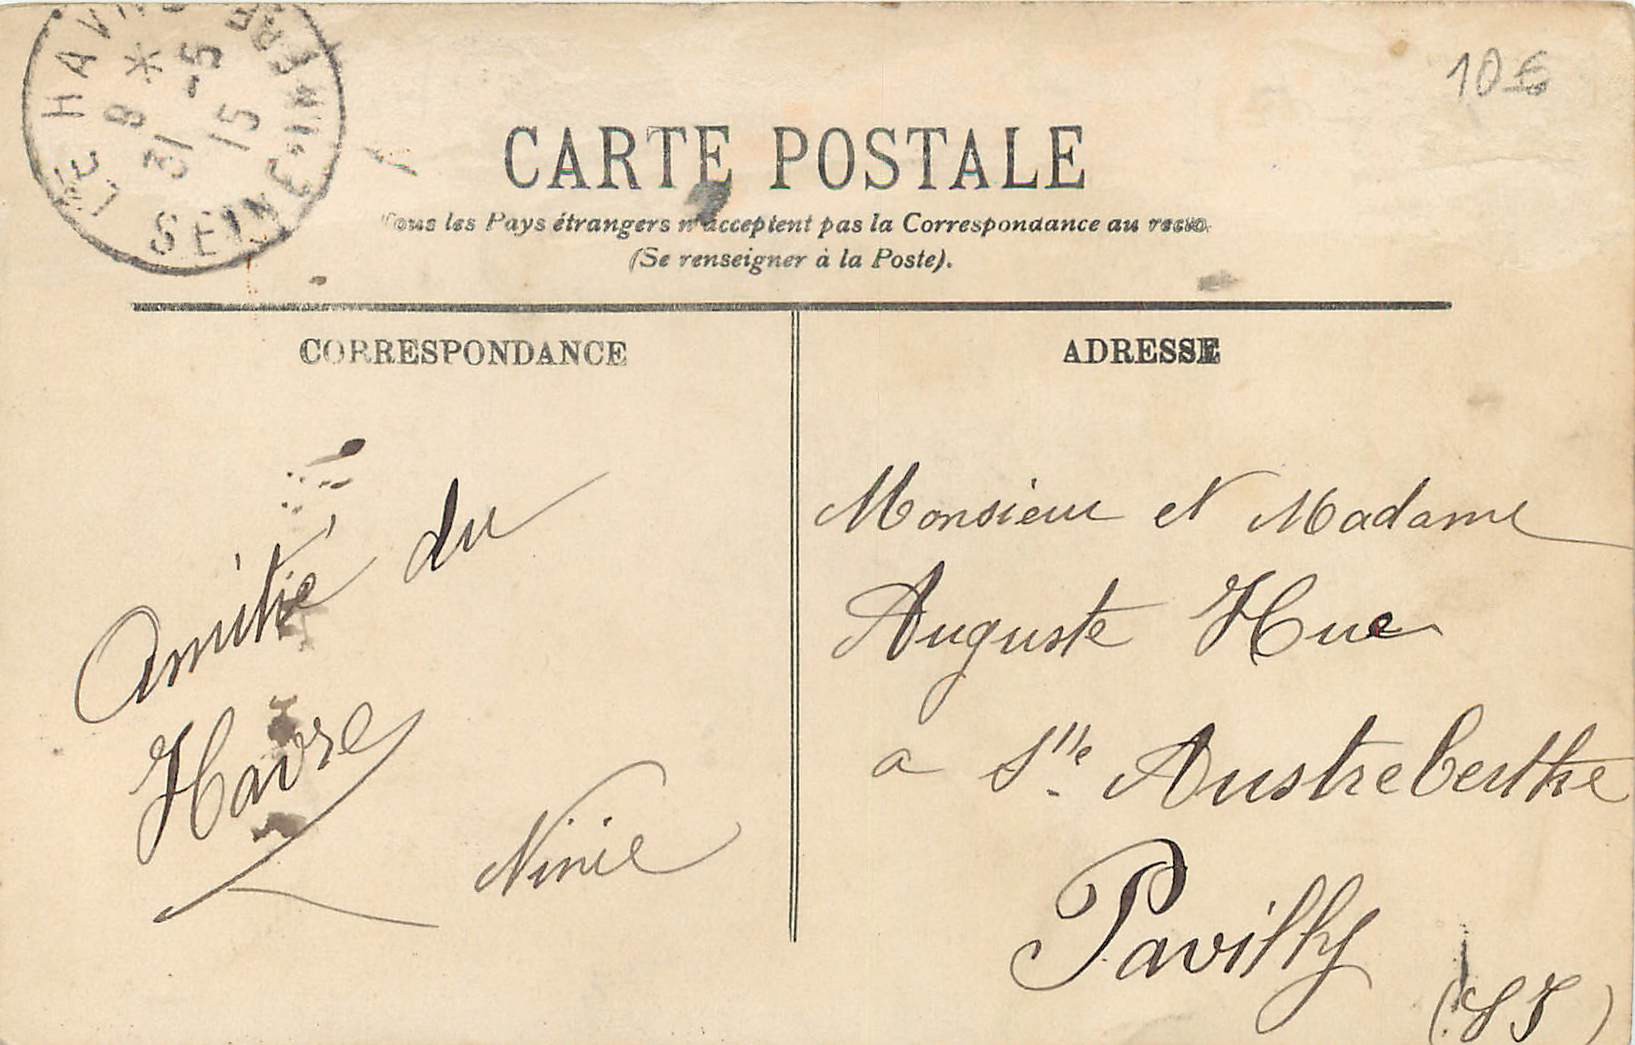 LE HAVRE
8 *
31 -5
15
SEINE-INFRE
10 €
CARTE POSTALE
Tous les Pays étrangers n'acceptent pas la Correspondance au recto.
(Se renseigner à la Poste).
CORRESPONDANCE
ADRESSE
Amitié du
Havre
Ninie
Monsieur et Madame
Auguste Hue
a Ste Austreberthe
Pavilly
(S I)